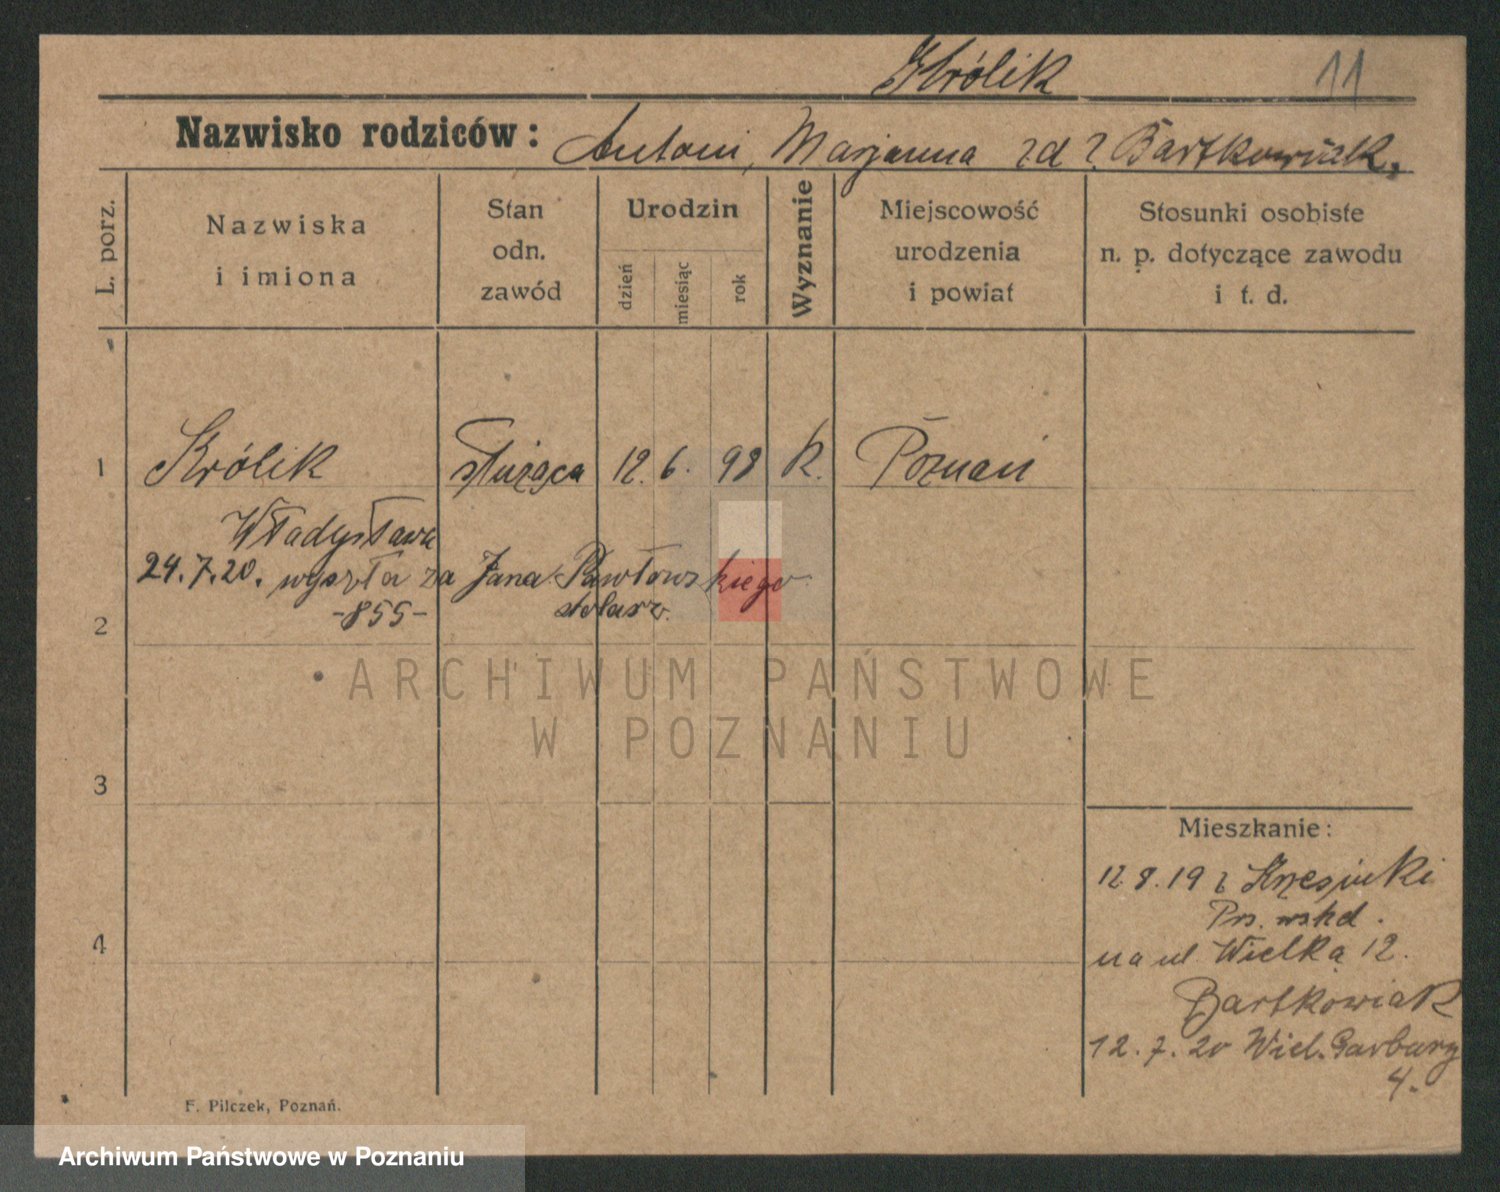 Królik 11
Nazwisko rodziców: Antoni, Marjanna zd. Bartkowiak,
L. porz.
Nazwiska
i imiona
Stan
odn.
zawód
Urodzin
dzień
miesiąc
rok
Wyznanie
Miejscowość
urodzenia
i powiat
Stosunki osobiste
n. p. dotyczące zawodu
i t. d.
1 Królik służąca 12. 6. 98 k. Poznań
Władysława
24.7.20. wyszła za Jana Pawłowskiego
-855- stolarz.
2
3
4
ARCHIWUM PAŃSTWOWE
W POZNANIU
Mieszkanie:
12 8. 19 z
na ul Wielką 12.
Bartkowiak
12. 7. 20 Wiel. Garbary
4.
F. Pilczek, Poznań.
Archiwum Państwowe w Poznaniu